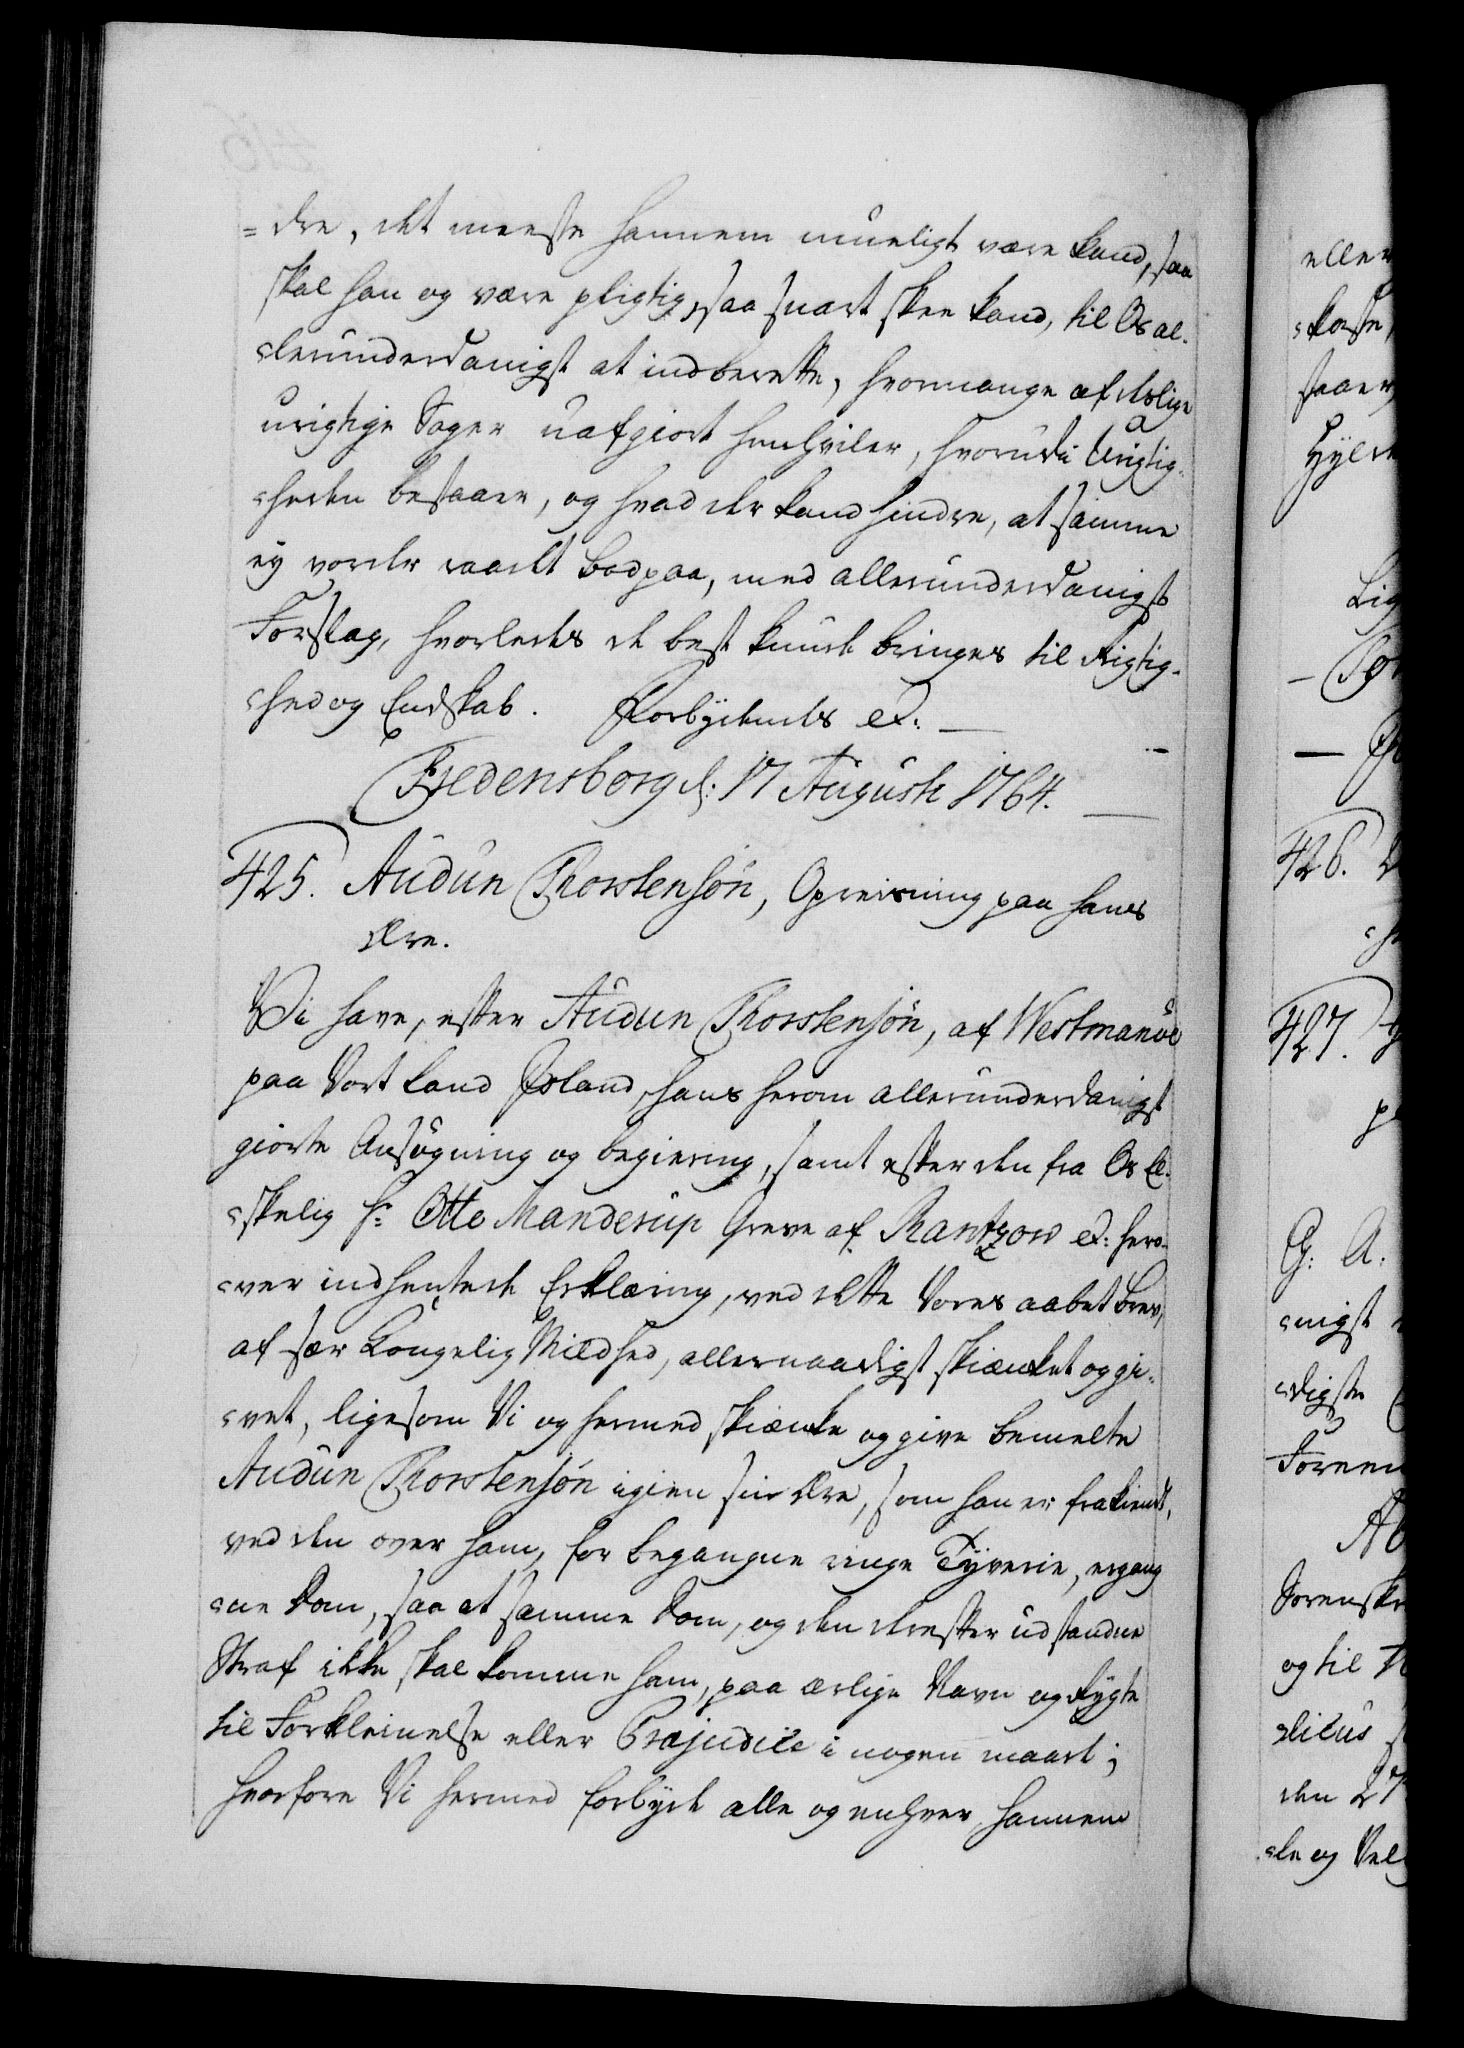 =dre, det meeste hannem mueligt være kand, saa
skal han og være pligtig, saa snart skee kand, til Os al-
lerunderdanigst at indberette, hvormange af deslige
urigtige Sager uafgiort henhviler, hvorudi Urigtig-
heden bestaaer, og hvad der kand hindre, at samme
ey vorder raadt bod paa, med allerunderdanigst
Forslag, hvorledes de best kunde bringes til Rigtig-
hed og Endskab. Forbydendes etc.
Fredensborg d. 17 Augusti 1764.
425. Audun Thorstensøn, Opreisning paa hans
Ære.
Vi have, efter Audun Thorstensøn, af Westmanøe
paa Vort Land Island, hans herom allerunderdanigst
giorte Ansøgning og begiering, samt efter den fra Os El-
skelig Hr. Otto Manderup Greve af Rantzow etc. hero-
ver indhentede Erklæring, ved dette Vores aabet brev,
af sær Kongelig Mildhed, allernaadigst skiænket og gi-
vet, ligesom Vi og hermed skiænke og give bemelte
Audun Thorstensøn igien sin Ære, som han er frakiendt,
ved den over ham, for begangne ringe Tyverie, ergang
ne Dom, saa at samme Dom, og den derefter udstandne
Straf ikke skal komme ham, paa ærlige Navn og Rygte
til Forkleinelse eller Præjudice i nogen maade;
hvorfore Vi hermed forbyde alle og enhver, hannem
eller
426.
427.
og til
den 27